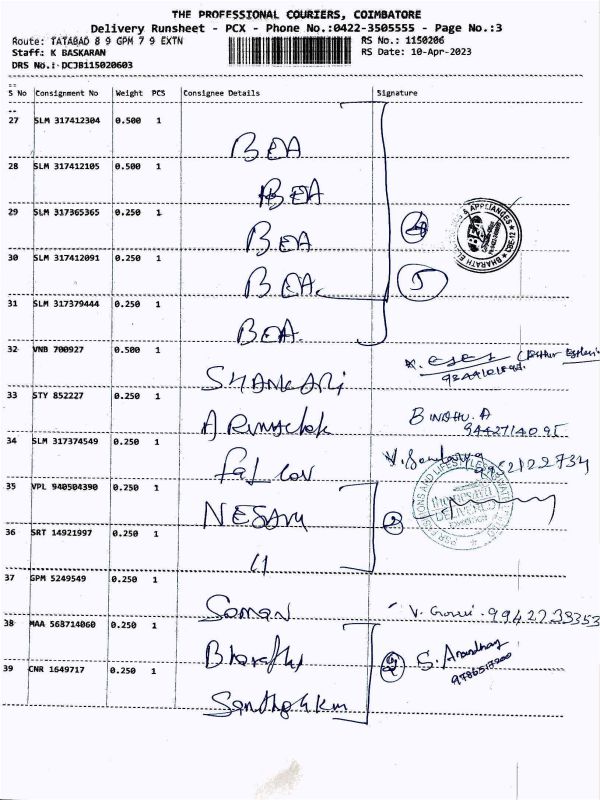 THE PROFESSIONAL COURIERS, COIMBATORE
Delivery Runsheet - PCX - Phone No.:0422-3505555 - Page No.:3
Route: TATABAD 8 9 GPM 7 9 EXTN
RS No.: 1150206
Staff: K BASKARAN
RS Date: 10-Apr-2023
DRS No.: DCJB115020603
S No Consignment No Weight PCS Consignee Details Signature
27 SLM 317412304 0.500 1
BEA
28 SLM 317412105 0.500 1
BEA
29 SLM 317365365 0.250 1
BEA
4
30 SLM 317412091 0.250 1
BEA
5
31 SLM 317379444 0.250 1
BEA
32 VNB 700927 0.500 1
33 STY 852227 0.250 1
BINDHU. A
9442714095
34 SLM 317374549 0.250 1
9952122734
35 VPL 940504390 0.250 1
NESAM
2
36 SRT 14921997 0.250 1
11
37 GPM 5249549 0.250 1
Soman
V. Gowri
38 MAA 563714060 0.250 1
2
39 CNR 1649717 0.250 1